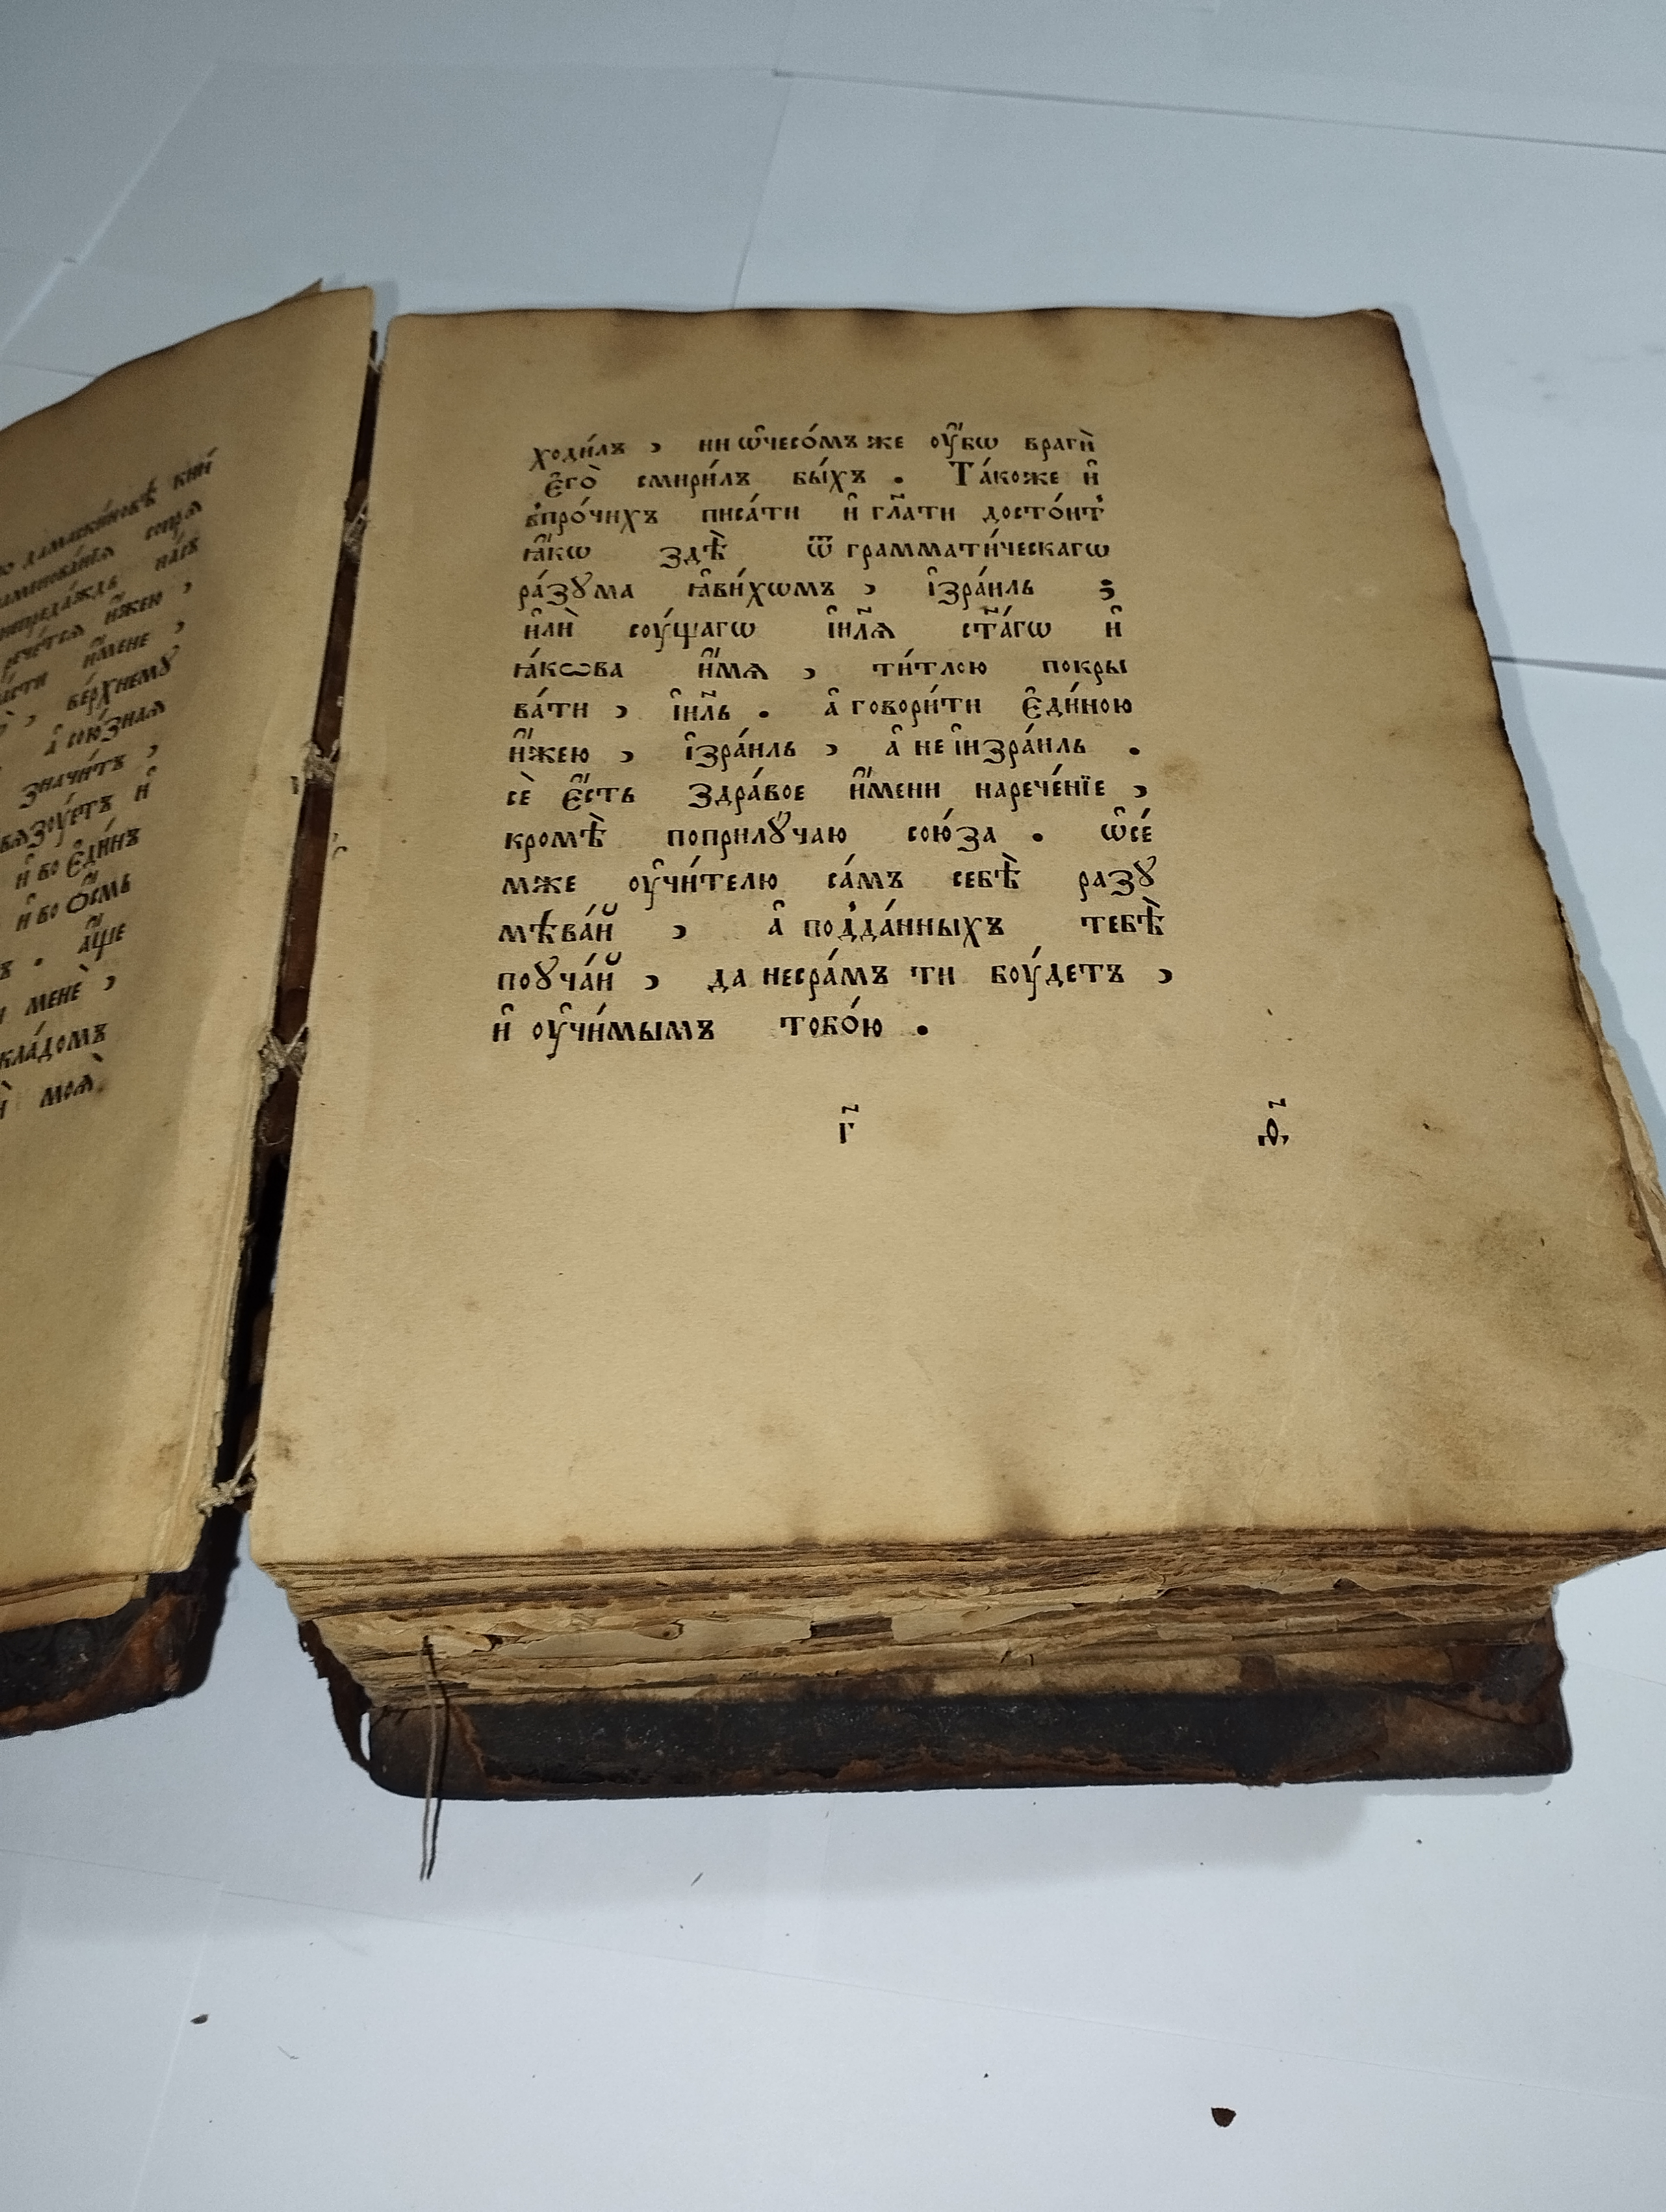 ю дамаскиновѣ кни́
аменова́нїѧ сопрѧ
непреда́ждь на́съ
рече́тсѧ и҆́жею ,
а́сти и҆́мене ,
, ве́рхнемꙋ
а҆ сою́знаѧ
значи́тъ ,
вѧзоу́етъ и҆
и҆ бо є҆ди́нъ
и҆ бо ѻ҆́смь
ъ . а҆́ще
и менѐ ,
кла́домъ
и моѧ̀.
ходи́лъ , ни ѡ҆чесо́мъ же оу҆́бѡ враги̂
є҆го̀ смири́лъ бы́хъ . Та́коже и҆
впро́чихъ писа́ти и҆ гл҃ати досто́итъ
ꙗ҆́кѡ здѣ̀ ѿ грамматі́ческагѡ
ра́зꙋма ꙗ҆ви́хѡмъ , і҆зра́иль ;
и҆лѝ соу́щагѡ і҆и҃лѧ ст҃а́гѡ и҆
ꙗ҆́кѡва и҆́мѧ , ти́тлою покры
ва́ти , і҆и҃ль . а҆ говори́ти є҆ди́ною
и҆́жею , і҆зра́иль , а҆ не і҆изра́иль .
сѐ є҆́сть здра́вое и҆́мени нарече́нїе ,
кромѣ̀ поприлꙋ́чаю сою́за . ѡ҆се́
мже оу҆чи́телю са́мъ себѣ̀ разꙋ
мѣва́й , а҆ по́дда́нныхъ тебѣ̀
поꙋча́й , да несра́мъ ти боу́детъ ,
и҆ оу҆чи́мымъ тобо́ю .
г҃